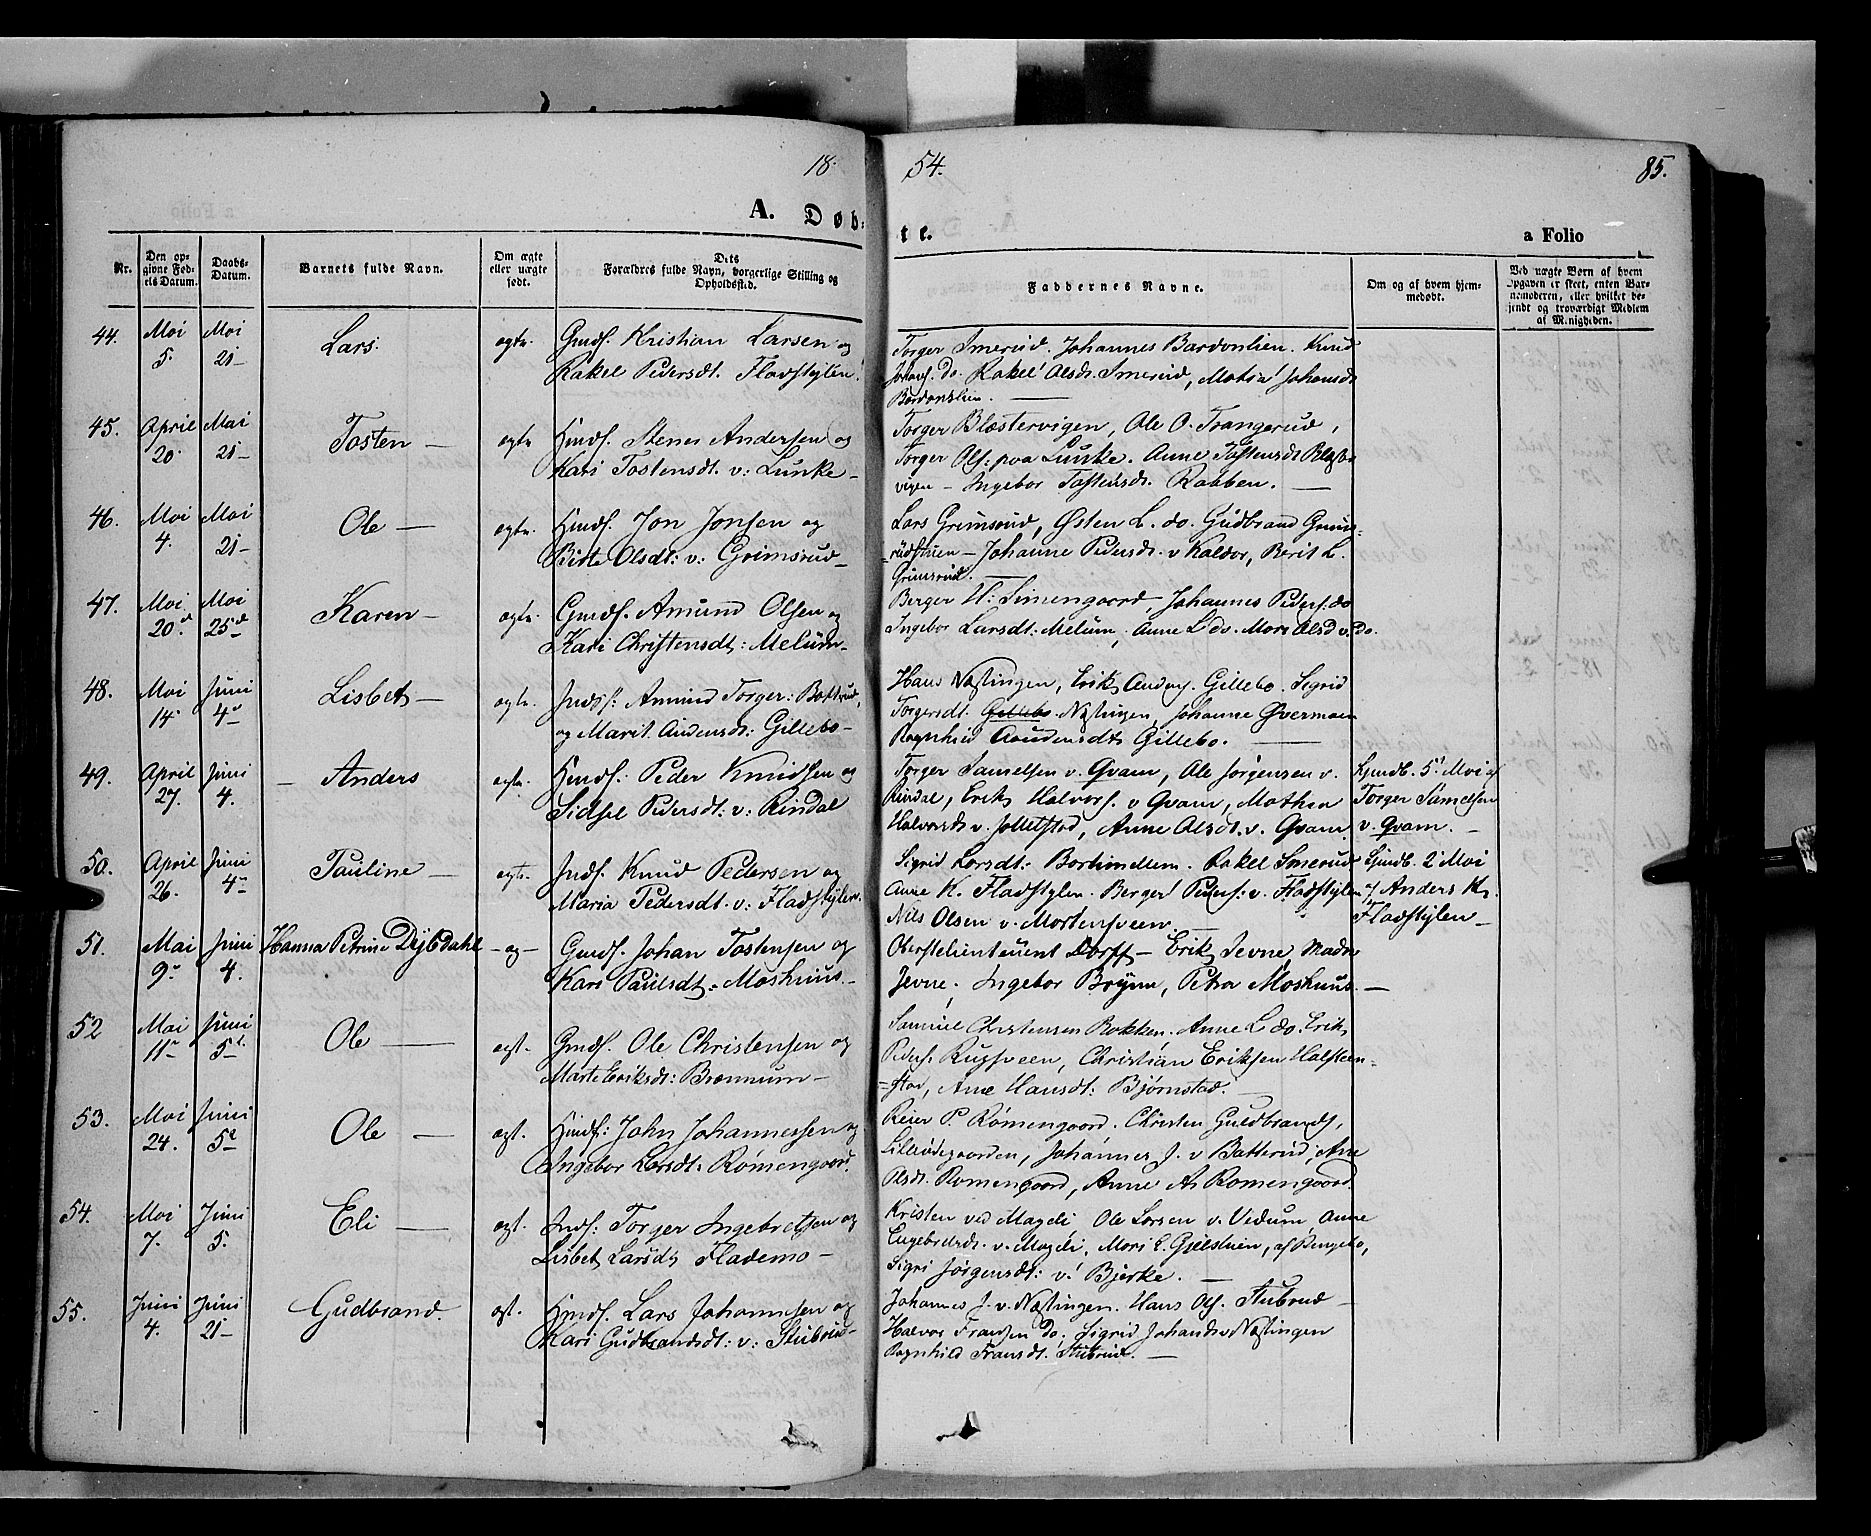 18
54.
85.
A. Døb-
te.
a Folio
Nr.
Den op-
givne Fød-
els Datum.
Daabs-
Datum.
Barnets fulde Navn.
Om ægte
eller uægte
født.
Dets
Forældres fulde Navn, borgerlige Stilling og
Opholdssted.
Faddernes Navne.
Om og af hvem hjem-
medøbt.
Ved uægte Børn af hvem
Opgaven er skeet, enten Bar-
nemoderen, eller hvilket be-
kjendt og troværdigt Medlem
af Menigheden.
44. Mai 5. Mai 21- Lars. ægte. Gmdf. Kristian Larsen og
Rakel Pedersdt. Fladstylen.
Torger Smerud. Johannes Bardonlien. Knud
Johans. do. Rakel Olsdt. Smerud, Matia Johansdt
Bardonslien. —
45. April 20. Mai 21- Tosten — ægte. Hmdf. Stener Andersen og
Kari Tostensdt. v: Lunke-
Torger Blæstervigen, Ole O. Trangerud,
Torger Ols: paa Lunke. Anne Tostensdt Blæster
vigen - Ingebor Tostensdt. Rabben. —
46. Mai 4. Mai 21- Ole — ægte. Hmdf. Jon Jonsen og
Birte Olsdt: v: Grimsrud-
Lars Grimsrud, Østen L. do. Gudbrand Grims-
rudstuen - Johanne Pedersdt. v Kaldor, Berit L.
Grimsrud.
47. Mai 20. Mai 25 Karen - ægte. Gmdf. Amund Olsen og
Kari Christensdt: Melum-
Berger H: Simengaard, Johannes Peders. do
Ingebor Larsdt: Melum, Anne L do. Mari Olsd v. do.
48. Mai 14. Juni 4- Lisbet - ægte. Indss: Amund Torger: Batterud,
og Marit Audensdt: Gillebo-
Hans Næstingen, Erik Anders. Gillebo. Sigrid
Torgersdt. Gillebo Næstingen, Johanne Øvermoen
Ragnhild Aaudensdt Gillebo. —
49. April 27. Juni 4. - Anders ægte. Hmdf: Peder Knudsen og
Sidsel Pedersdt: v: Rindal
Torger Samelsen v. Qvam, Ole Jørgensen v.
Rindal, Erik Halvors. v Qvam, Mathea
Halvorsdt v. Jolletstad, Anne Olsdt. v. Qvam.
Hjmdb. 5. Mai af
Torger Samelsen
v. Qvam. -
50. April 26. Juni 4- Pauline - ægte. Indf. Knud Pedersen og
Maria Pedersdt. v: Fladstylen.
Sigrid Larsdt: Rakel Smerud
Anne K. Fladstylen. Berger Peders: v. Fladstylen
Nils Olsen v. Mortensveen. —
Hjmdb. 2 Mai
af Anders K.
Fladstylen -
51. Mai 9. Juni 4. Hanna Petrine Dybdahl - æg - Gmdf. Johan Tostensen og
Kari Paulsdt. Moshuus.-
Oberstelieutenent Dorff - Erik Jevne, Madm
Jevne, Ingebor Brynn, Petra Moshuus. —
52 Mai 11- Juni 5- Ole — ægt. Gmdf. Ole Christensen og
Marte Eriksdt: Brennum -
Samuel Christensen Bakken. Anne L do. Erik
Peders. Rugsveen, Christian Eriksen Holsteen-
stad, Ane Hansdt: Bjørnstad. -
53. Mai 24. Juni 5 Ole - ægt. Hmdf: John Johannessen og
Ingebor Larsdt. Rømengaard.
Reier P. Rømengaard. Christen Guldbrands,
Lilleødegaarden, Johannes J. v Batterud, Ane
Olsdt. Rømengaard, Anne A. Romengaard.
54. Mai 7. Juni 5. Eli — ægt. Indf: Torger Ingebretsen og
Lisbet Larsdt Flademo -
Kristen ved Magdi, Ole Larsen v. Vedum, Anne
Engebretsdt. v. Magdi, Mari E. Gjelstuen, af Ringebo,
Sigri Jørgensdt: v: Bjerke. —
55. Juni 4. Juni 21- Gudbrand. ægt. Hmdf. Lars Johannsen og
Kari Gudbrandsdt: v: Stubrud-
Johannes J. v. Næstingen. Hans Ols. Stubrud -
Halvor Fransen do. Sigrid Johansdt v Næstingen
Ragnhild Fransdt. Stubrud. —